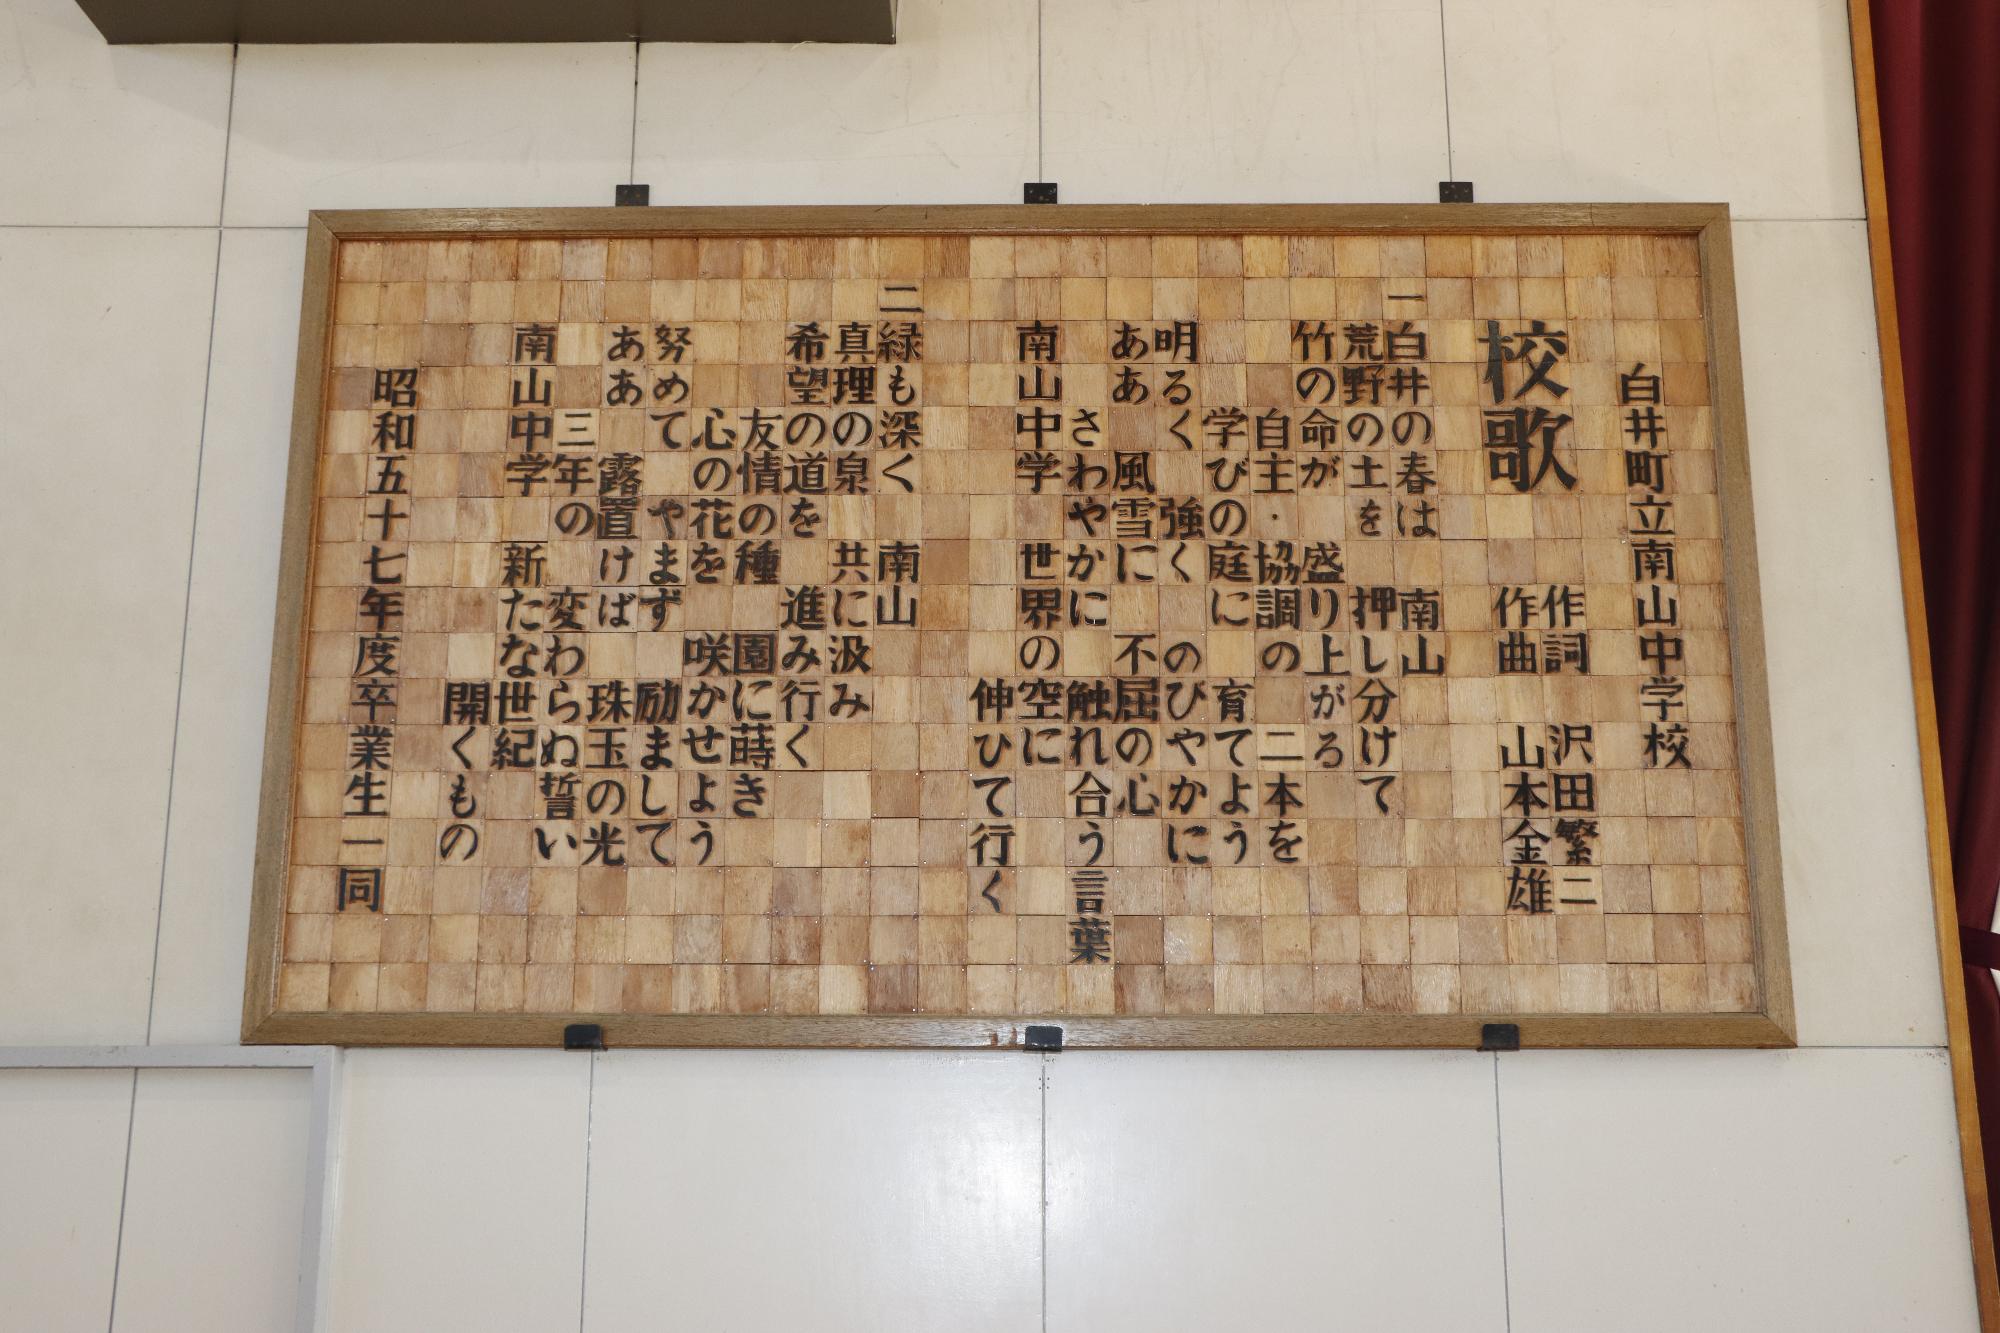 白井町立南山中学校
校歌
作詞 沢田繁二
作曲 山本金雄
一
白井の春は 南山
荒野の土を 押し分けて
竹の命が 盛り上がる
自主・協調の 二本を
学びの庭に 育てよう
明るく 強く のびやかに
ああ 風雪に 不屈の心
さわやかに 触れ合う言葉
南山中学 世界の空に
伸びて行く
二
緑も深く 南山
真理の泉 共に汲み
希望の道を 進み行く
友情の種 園に蒔き
心の花を 咲かせよう
努めて やまず 励まして
ああ 露置けば 珠玉の光
三年の 変わらぬ誓い
南山中学 新たな世紀
開くもの
昭和五十七年度卒業生一同